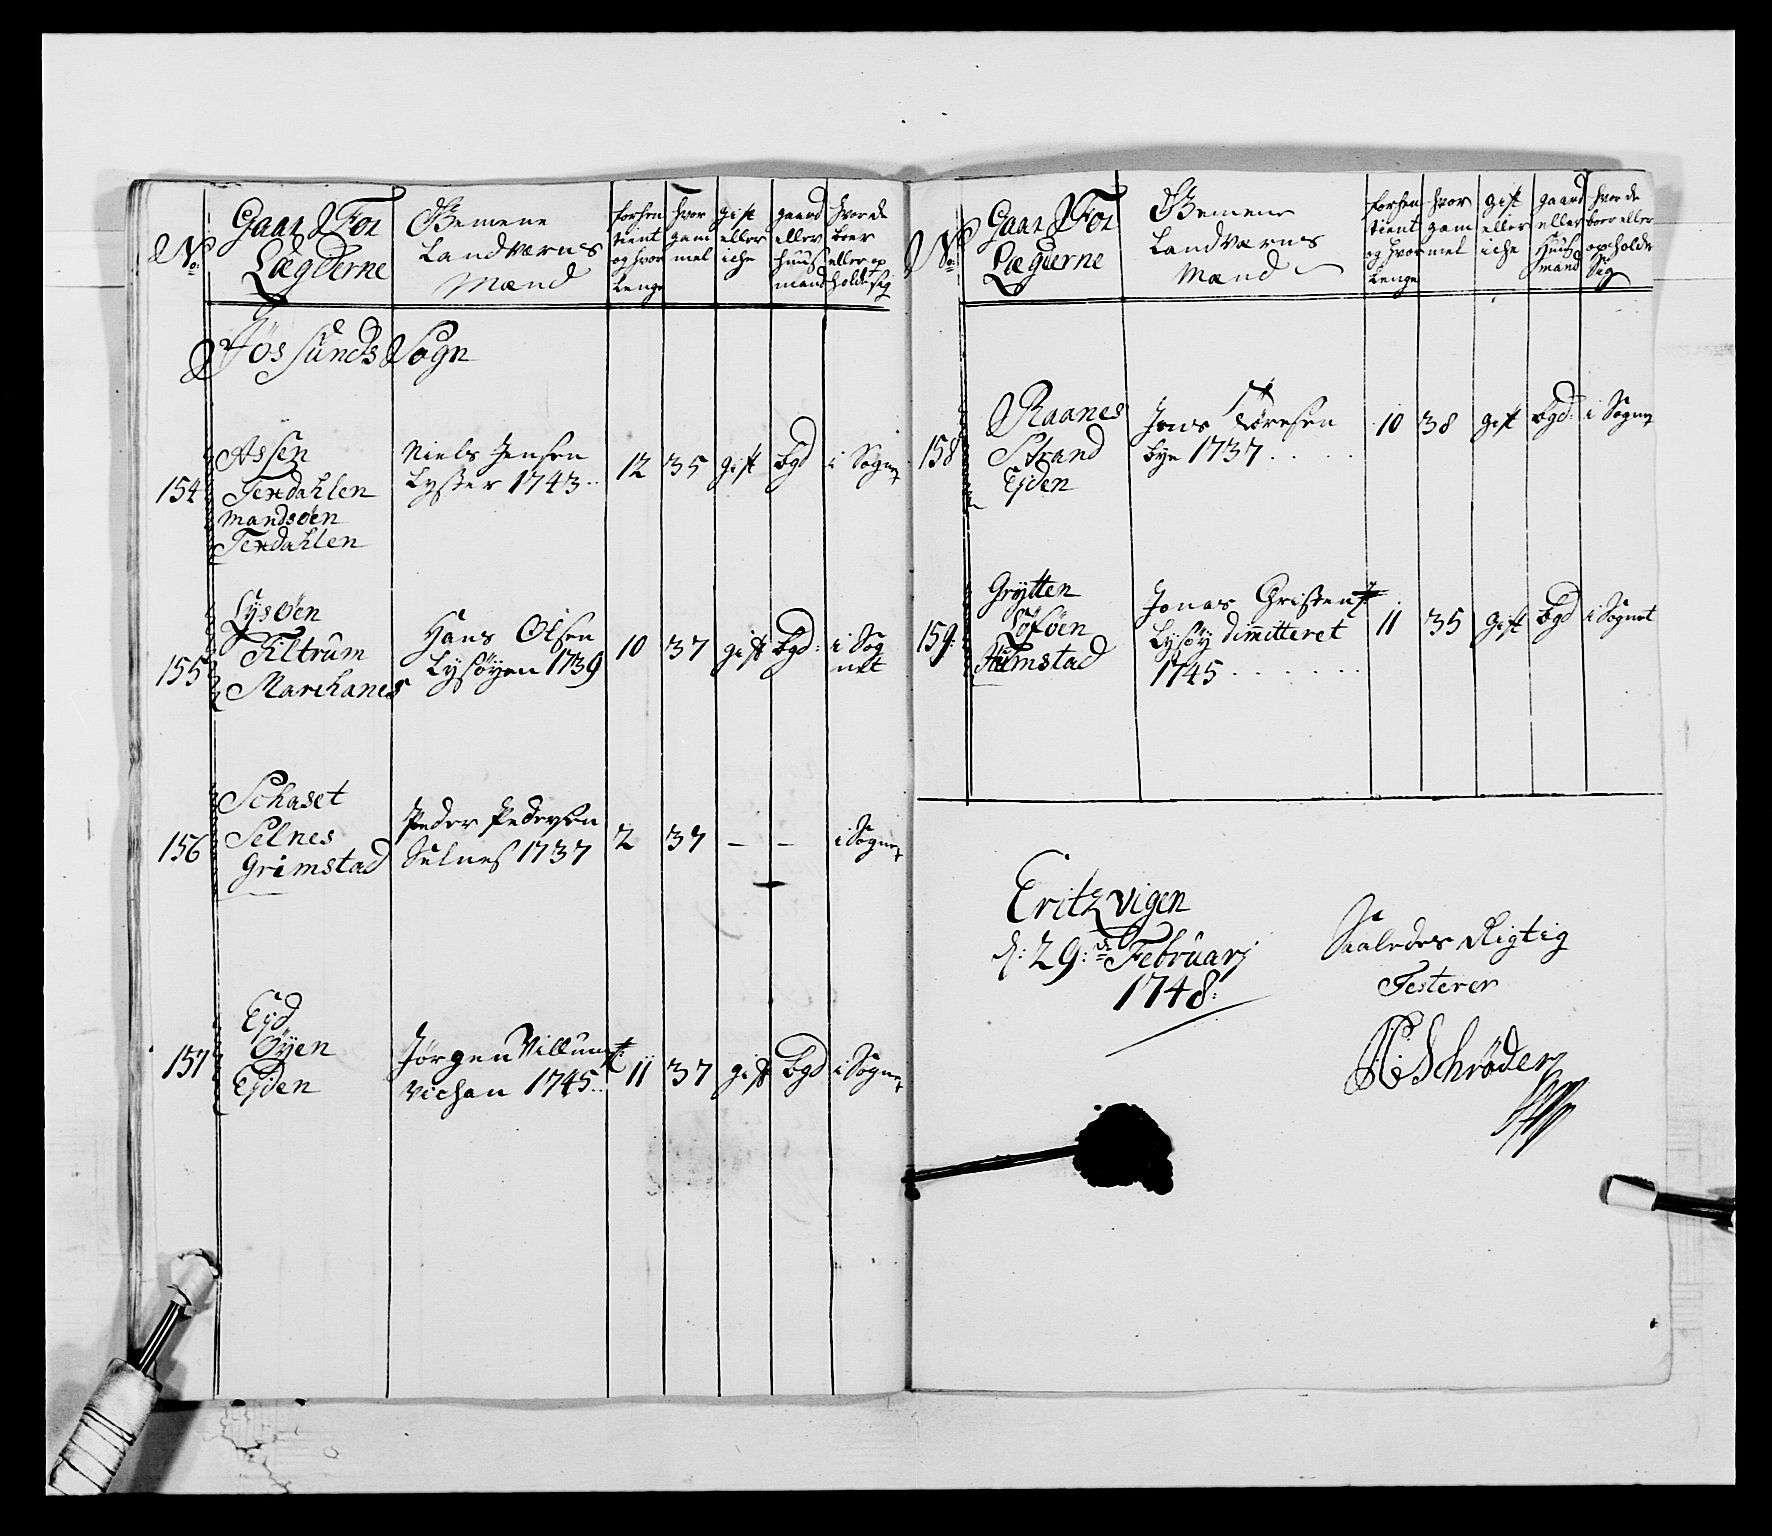 No:
Gaar d For
Lægderne
Gemene
Landværns
Mænd
forhen
tient
og hvor
Lenge
hvor
gam
mel
gift
eller
iche
gaard
eller
huus
mand
hvor de
boer
eller op
holde sig
Jøssunds Sogn
154
Assen
Terdahlen
Mandsøen
Terdahlen
Niels Jensen
Lysser 1743
12
35
gift
bgd
i Sogne
155
Lysøen
Tiltrum
Marchanes
Hans Olsen
Lysøyen 1739
10
37
gift
bgd:
i Sog
net
156
Schaset
Selnes
Grimstad
Peder Pedersen
Selnes 1737
2
37
–
–
i Sogne
157
Eyd
Øyen
Ejden
Jørgen Villums:
Vichan 1745
11
37
gift
bgd
i Sogne
No:
Gaar d For
Lægderne
Gemene
Landværns
Mænd
forhen
tient
og hvor
Lenge
hvor
gam
mel
gift
eller
iche
gaard
eller
huus
mand
hvor de
boer eller
opholde
Sig
158
Raanes
Strand
Ejden
Jens Toresen
bye 1737
10
38
gift
bgd:
i Sogne
159:
Grytten
Løføen
Holmstad
Jonas Christens:
Lysøy dimitteret
1745
11
35
gift
bgd
i Sognet
Eritzvigen
d: 29:de Februarj
1748:
Saaledes Rigtig
Testerer
Schrøder